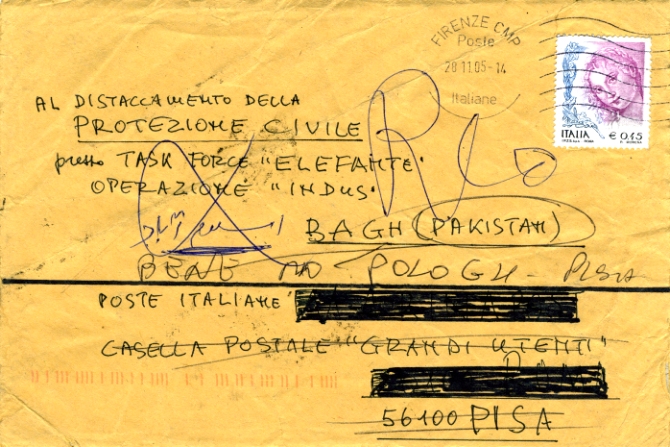 FIRENZE CMP
Poste
28 11 05-14
Italiane
ITALIA € 0,45
AL DISTACCAMENTO DELLA
PROTEZIONE CIVILE
presso TASK FORCE "ELEFANTE"
OPERAZIONE "INDUS"
BAGH (PAKISTAN)
POSTE ITALIANE
CASELLA POSTALE "GRANDI UTENTI"
56100 PISA